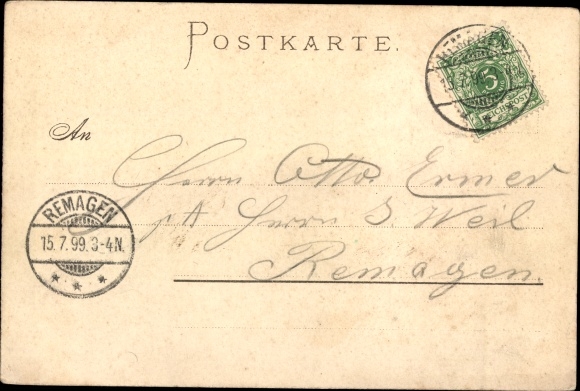 POSTKARTE.
5
REICHSPOST
An
Herrn Otto Ermer
p. A Herrn J. Weil
Remagen.
REMAGEN
15.7.99.3-4N.